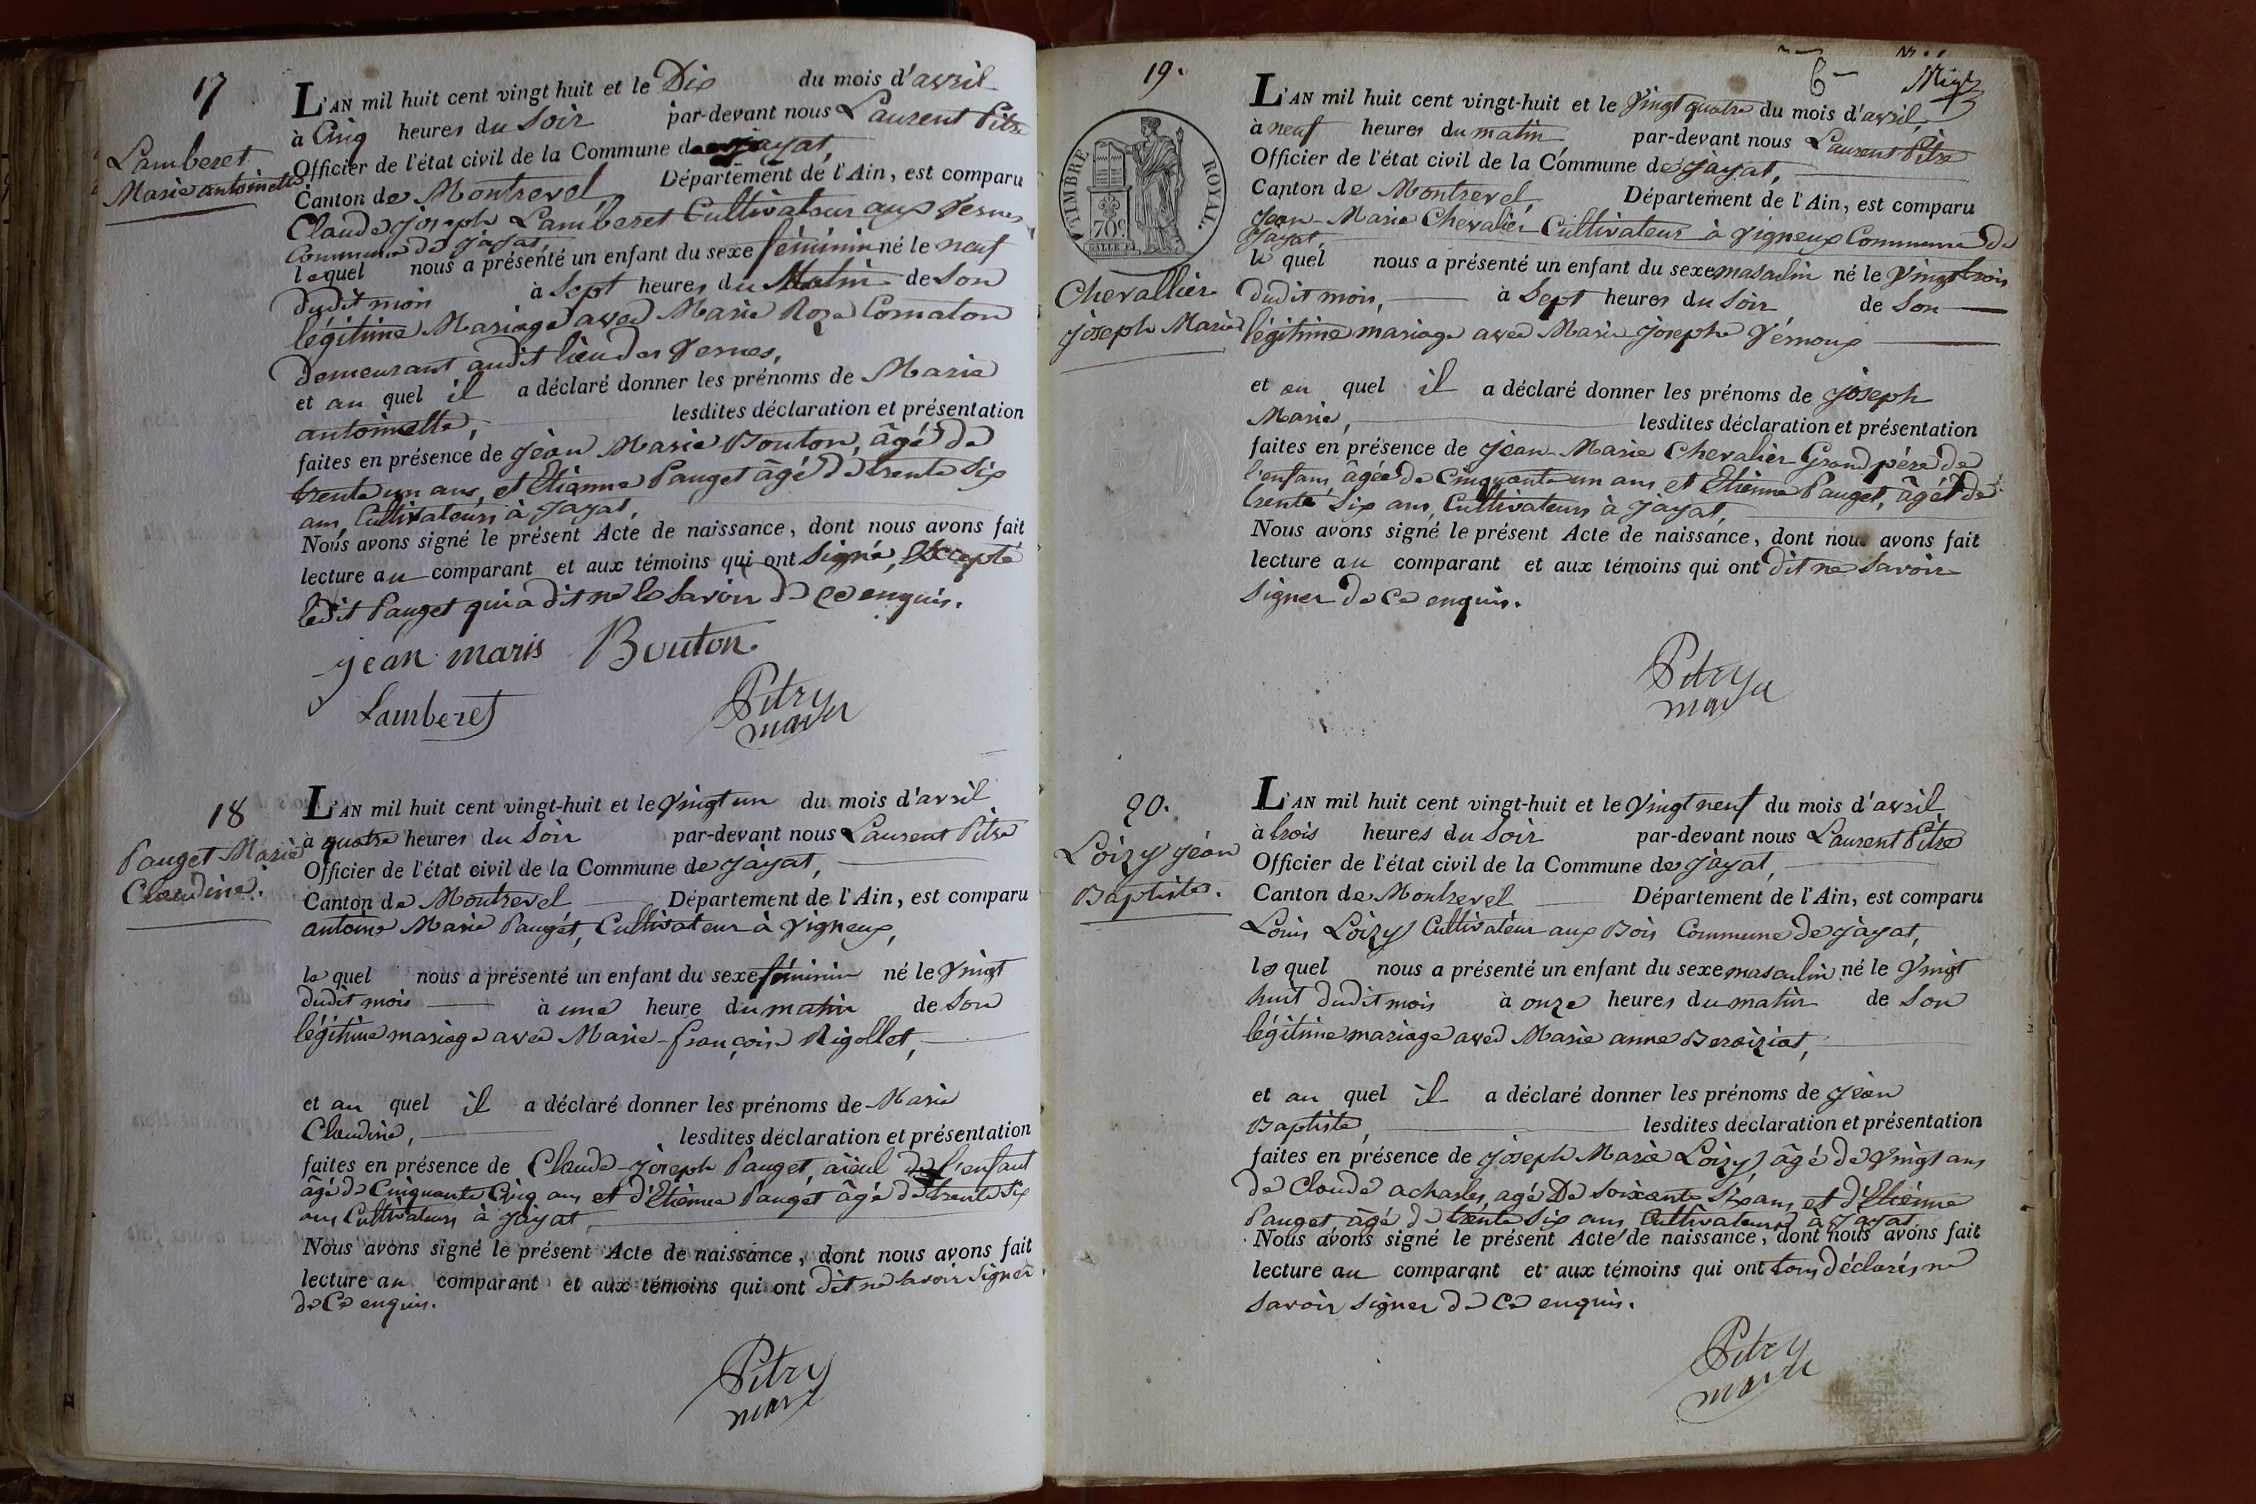 17
Lamberet
Marie antoinette
L'AN mil huit cent vingt huit et le Dix du mois d'avril
à Cinq heures du Soir par-devant nous Laurent Pitre
Officier de l'état civil de la Commune de Jayat,
Canton de Montrevel Département de l'Ain, est comparu
Claude joseph Lamberet Cultivateur aux Vernes,
Commune de Jayat,
lequel nous a présenté un enfant du sexe féminin né le neuf
dudit mois à Sept heures du Matin de Son
légitime Mariage avec Marie Roze Comaton
demeurant audit lieu des Vernes,
et au quel il a déclaré donner les prénoms de Marie
antoinette, lesdites déclaration et présentation
faites en présence de jean Marie Bouton, âgé de
trente un ans, et Etienne Pauget âgé de trente Six
ans, Cultivateurs à Jayat,
Nous avons signé le présent Acte de naissance, dont nous avons fait
lecture au comparant et aux témoins qui ont Signé, Excepté
ledit Pauget qui a dit ne le Savoir de Ce enquis.
jean maris Bouton
Lamberet
Pitre
maire
18
Pauget Marie
Claudine.
L'AN mil huit cent vingt-huit et le Vingt un du mois d'avril
à quatre heures du Soir par-devant nous Laurent Pitre
Officier de l'état civil de la Commune de Jayat,
Canton de Montrevel Département de l'Ain, est comparu
antoine Marie Pauget, Cultivateur à Vigneux,
le quel nous a présenté un enfant du sexe féminin né le Vingt
dudit mois à une heure du matin de Son
légitime mariage avec Marie-françoise Rigollet,
et au quel il a déclaré donner les prénoms de Marie
Claudine, lesdites déclaration et présentation
faites en présence de Claude-joseph Pauget, aïeul de l'enfant
âgé de Cinquante Cinq ans et d'Etienne Pauget âgé de trente Six
ans, Cultivateurs à Jayat
Nous avons signé le présent Acte de naissance, dont nous avons fait
lecture au comparant et aux témoins qui ont dit ne Savoir Signer
de Ce enquis.
Pitre
maire
6
19.
TIMBRE ROYAL.
70c
Chevallier
joseph Marie
L'AN mil huit cent vingt-huit et le Vingt quatre du mois d'avril,
à neuf heures du matin par-devant nous Laurent Pitre
Officier de l'état civil de la Commune de Jayat,
Canton de Montrevel, Département de l'Ain, est comparu
Jean-Marie Chevalier Cultivateur à Vigneux Commune de
Jayat,
le quel nous a présenté un enfant du sexe masculin né le Vingt trois
dudit mois, à Sept heures du Soir de Son
légitime mariage avec Marie josephe Vernoux
et au quel il a déclaré donner les prénoms de joseph
Marie, lesdites déclaration et présentation
faites en présence de jean-Marie Chevalier Grand père de
l'enfant, âgée de Cinquante un ans et Etienne Pauget, âgé de
trente Six ans, Cultivateurs à Jayat,
Nous avons signé le présent Acte de naissance, dont nous avons fait
lecture au comparant et aux témoins qui ont dit ne Savoir
Signer de Ce enquis.
Pitre
maire
20.
Loizy jean
Baptiste.
L'AN mil huit cent vingt-huit et le Vingt neuf du mois d'avril
à trois heures du Soir par-devant nous Laurent Pitre
Officier de l'état civil de la Commune de Jayat,
Canton de Montrevel Département de l'Ain, est comparu
Louis Loizy Cultivateur aux Bois Commune de Jayat,
le quel nous a présenté un enfant du sexe masculin né le Vingt
huit dudit mois à onze heures du matin de Son
légitime mariage avec Marie anne Beroiziat,
et au quel il a déclaré donner les prénoms de jean
Baptiste, lesdites déclaration et présentation
faites en présence de joseph Marie Loizy, âgé de Vingt ans
de Claude acharles, agé De Soixante Six ans, et d'Etienne
Pauget, âgé de trente Six ans, Cultivateurs à Jayat,
Nous avons signé le présent Acte de naissance, dont nous avons fait
lecture au comparant et aux témoins qui ont tous déclarés ne
Savoir Signer de Ce enquis.
Pitre
maire